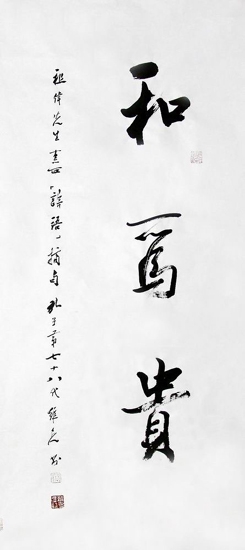 和為貴
祖偉先生 論語 摘句 孔子第七十八代維